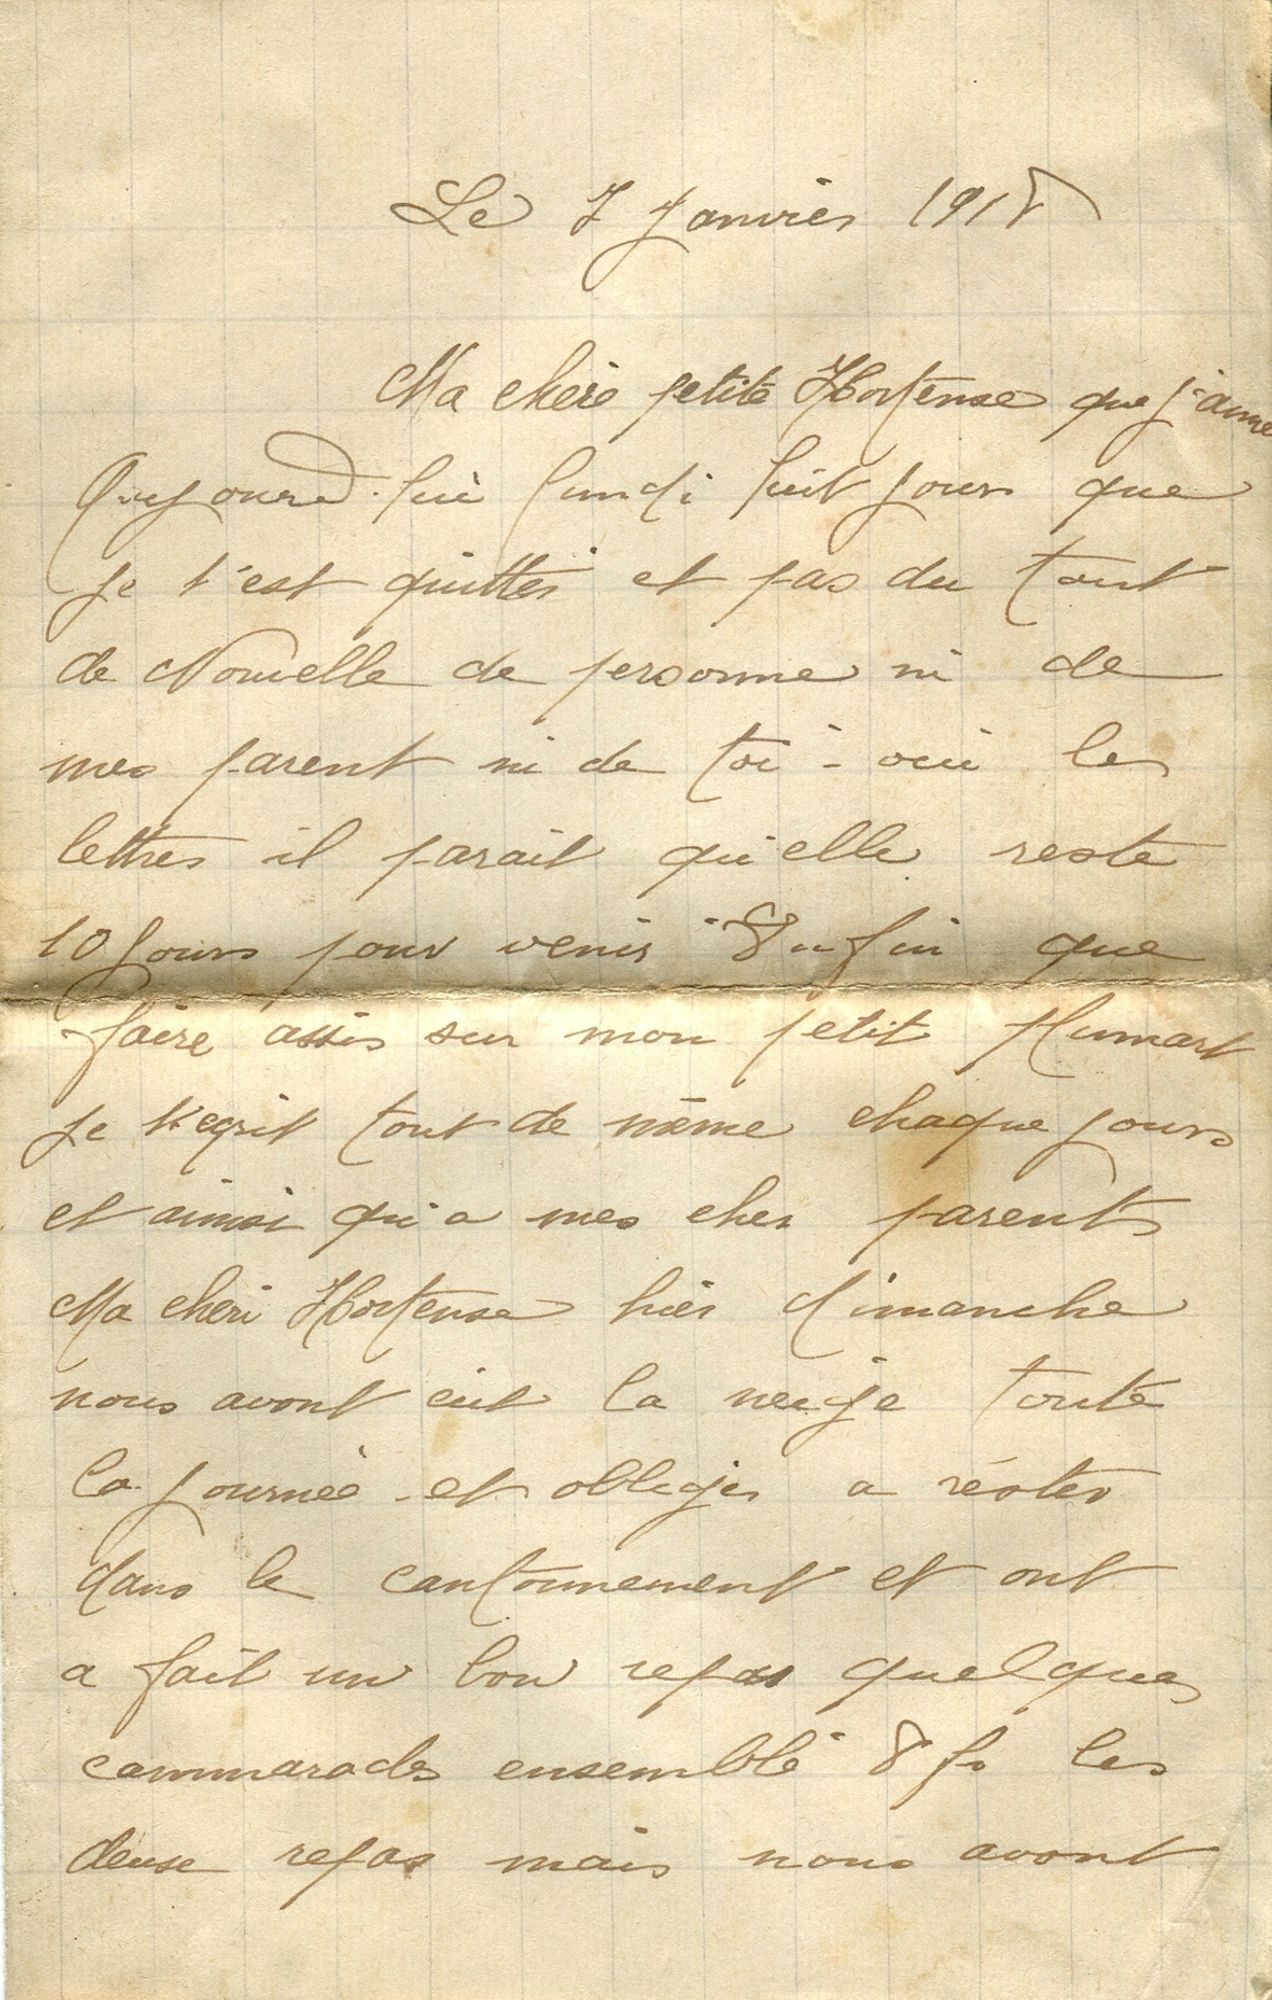 Le 7 Janvier 1918
Ma chère petite Hortense que j'aime
Aujourd'hui lundi huit jours que
je t'est quitter et pas du tout
de Nouvelle de personne ni de
mes parent ni de toi - oui les
lettres il parait qu'elle reste
10 jours pour venir Enfin que
faire assis sur mon petit Plumart
je t'ecrit tout de même chaque jours
et ainsi qu'a mes cher parents
Ma cheri Hortense hier dimanche
nous avont eut la neige toute
la journée et obliger a réster
dans le cantonnement et ont
a fait un bon repas quelques
cammarades ensemble 8 fs les
deuse repas mais nous avont